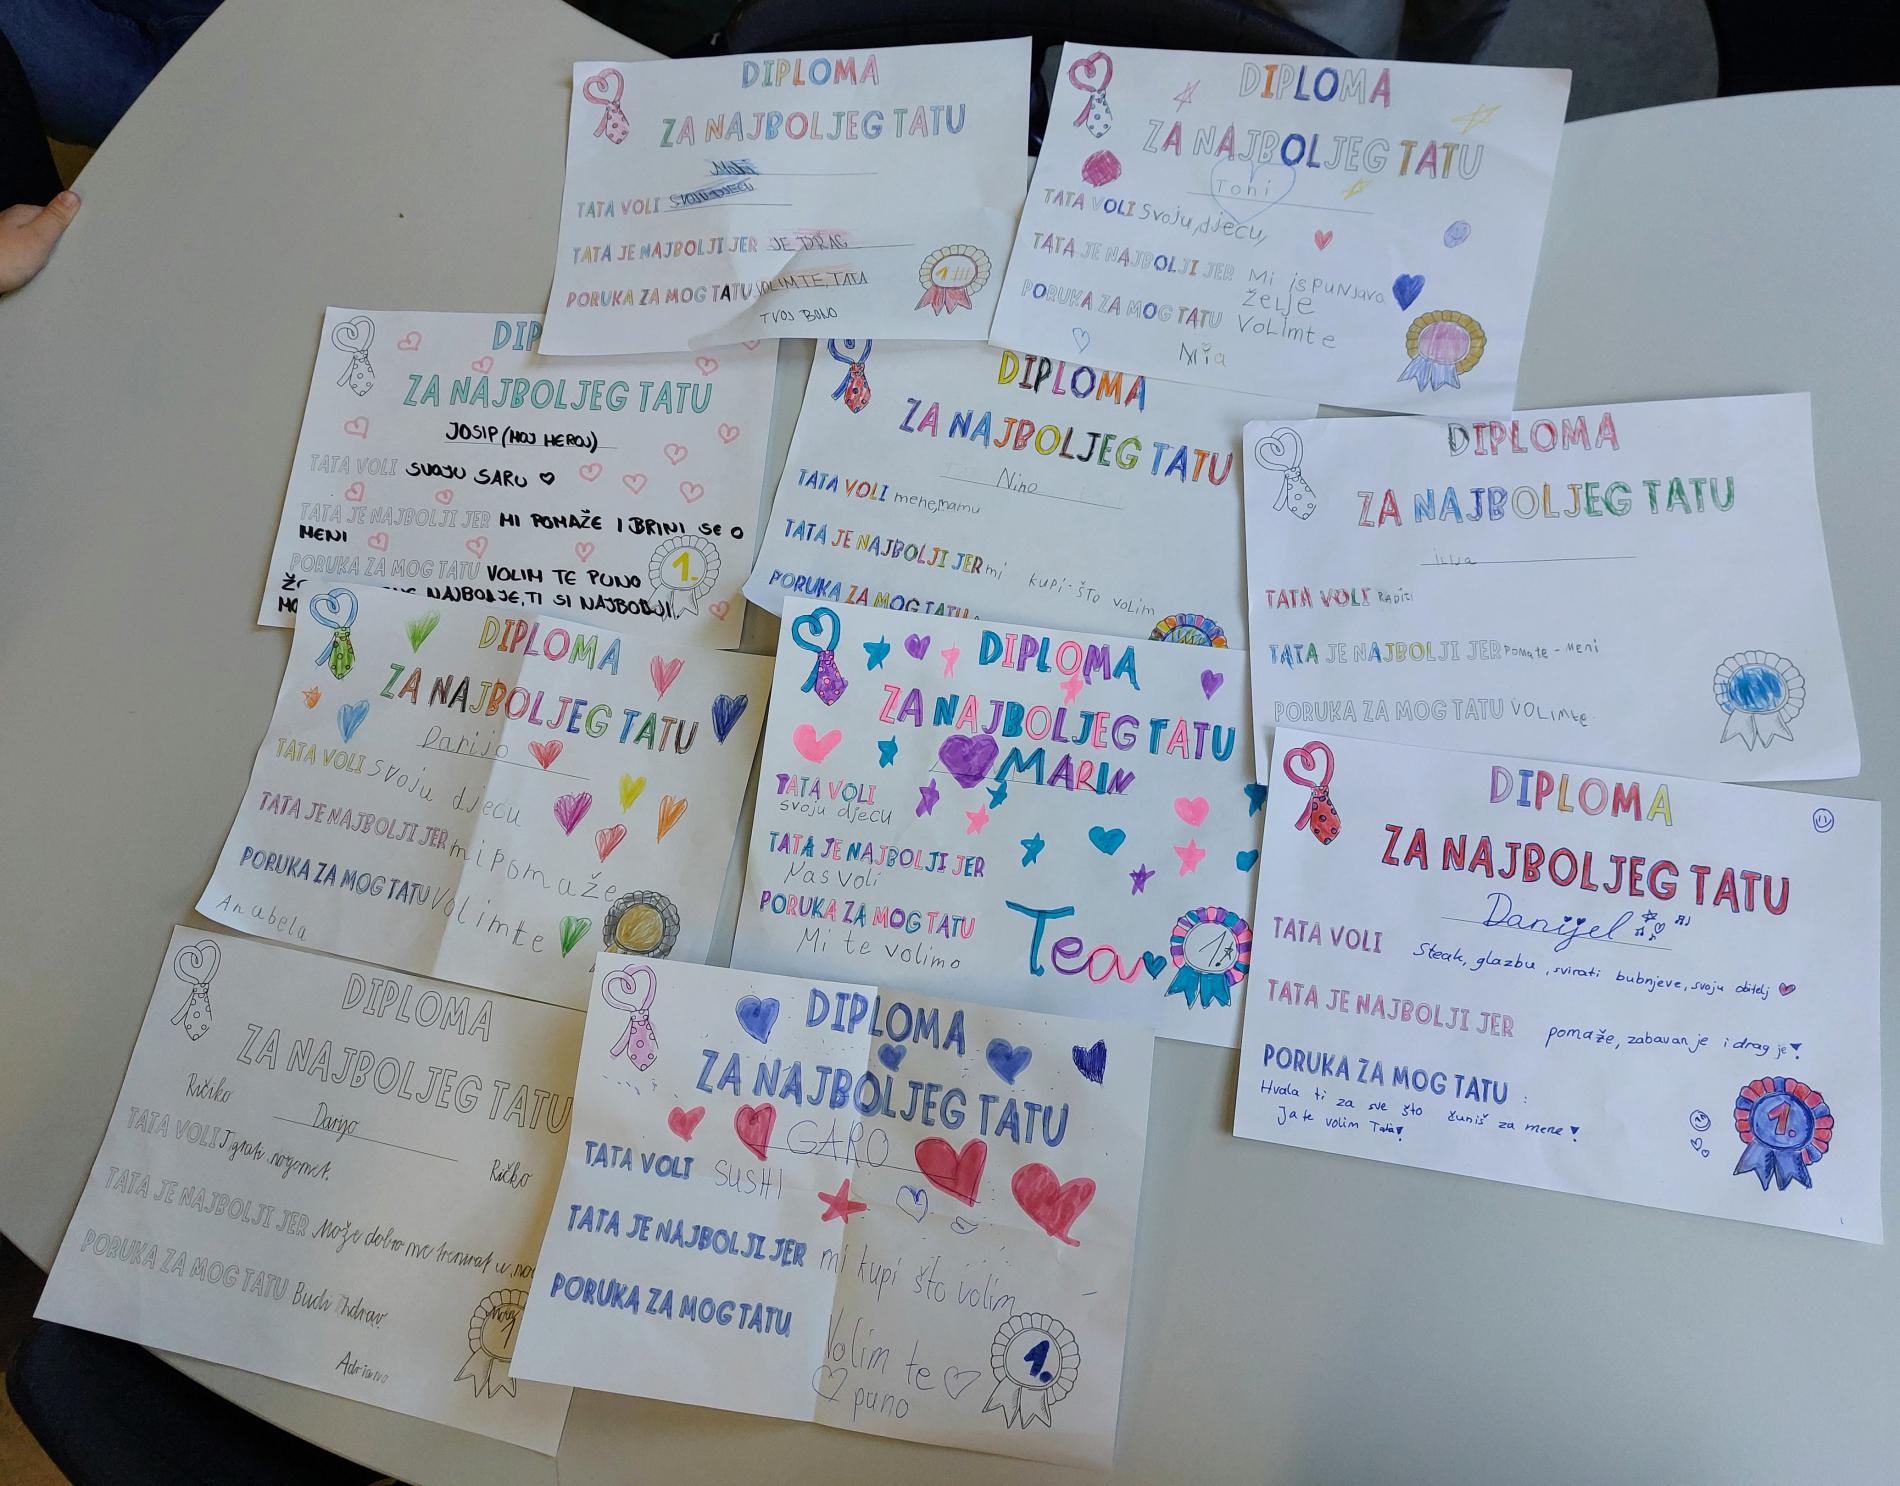 DIPLOMA
ZA NAJBOLJEG TATU
TATA VOLI SVOJU DJECU
TATA JE NAJBOLJI JER JE DRAG
PORUKA ZA MOG TATU VOLIM TE, TATA
TVOJ BONO
1
DIPLOMA
ZA NAJBOLJEG TATU
Toni
TATA VOLI svoju, djecu,
TATA JE NAJBOLJI JER Mi isPuNjava
želje
PORUKA ZA MOG TATU VoLimte
Mia
DIP
ZA NAJBOLJEG TATU
JOSIP (MOJ HEROJ)
TATA VOLI SVOJU SARU
TATA JE NAJBOLJI JER MI POMAŽE I BRINI SE O
MENI
PORUKA ZA MOG TATU VOLIM TE PUNO
NAJBOLJE, TI SI NAJBOLJI
1.
DIPLOMA
ZA NAJBOLJEG TATU
Nino
TATA VOLI mene, mamu
TATA JE NAJBOLJI JER mi kupi što volim
PORUKA ZA MOG TATU
DIPLOMA
ZA NAJBOLJEG TATU
TATA VOLI RADITI
TATA JE NAJBOLJI JER Pomaže - meni
PORUKA ZA MOG TATU VOLimte
DIPLOMA
ZA NAJBOLJEG TATU
Darijo
TATA VOLI svoju djecu
TATA JE NAJBOLJI JER mi Pomaže
PORUKA ZA MOG TATU Volimte
Anabela
DIPLOMA
ZA NAJBOLJEG TATU
MARIN
TATA VOLI
svoju djecu
TATA JE NAJBOLJI JER
Nas voli
PORUKA ZA MOG TATU
Mi te volimo
Tea
1.
DIPLOMA
ZA NAJBOLJEG TATU
Danijel
TATA VOLI Steak, glazbu, svirati bubnjeve, svoju obitelj
TATA JE NAJBOLJI JER pomaže, zabavan je i drag je!
PORUKA ZA MOG TATU :
Hvala ti za sve što čuniš za mene!
Ja te volim Tata!
1.
DIPLOMA
ZA NAJBOLJEG TATU
Ričko
Darijo
Ričko
TATA VOLI Igrati nogomet.
TATA JE NAJBOLJI JER Može dobro me trenirat u no
PORUKA ZA MOG TATU Budi Zdrav
1
DIPLOMA
ZA NAJBOLJEG TATU
GARO
TATA VOLI SUSHI
TATA JE NAJBOLJI JER mi kupi što volim
PORUKA ZA MOG TATU
Volim te
puno
1.